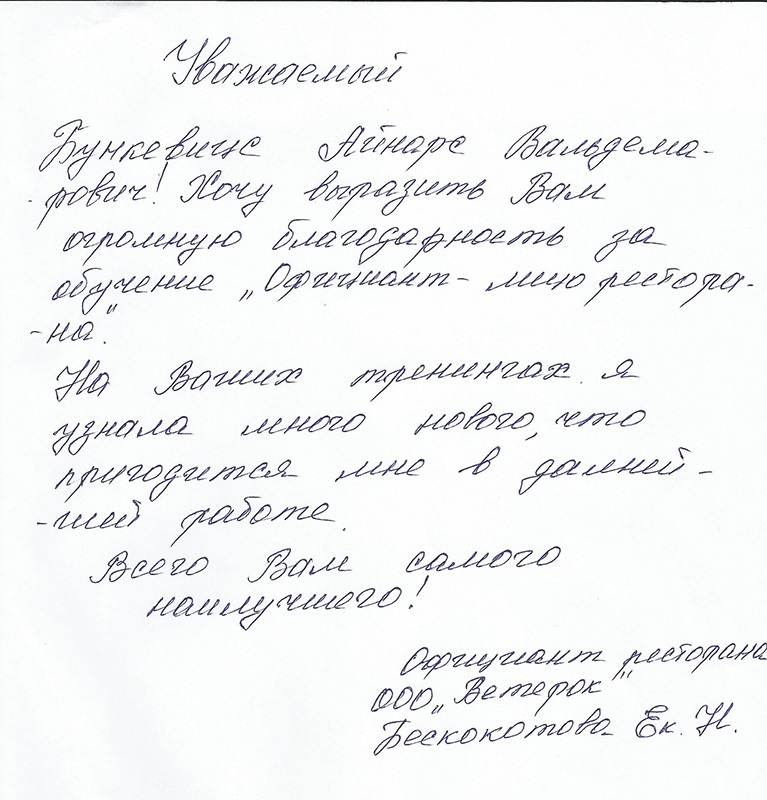 Уважаемый
Бункевицс Айнарс Вальдема-
рович! Хочу выразить Вам
огромную благодарность за
обучение „Официант- лицо рестора-
-на".
На Ваших тренингах я
узнала много нового, что
пригодится мне в дальней-
-шей работе.
Всего Вам самого
наилучшего!
Официант ресторана
ООО „Ветерок"
Ек. Н.